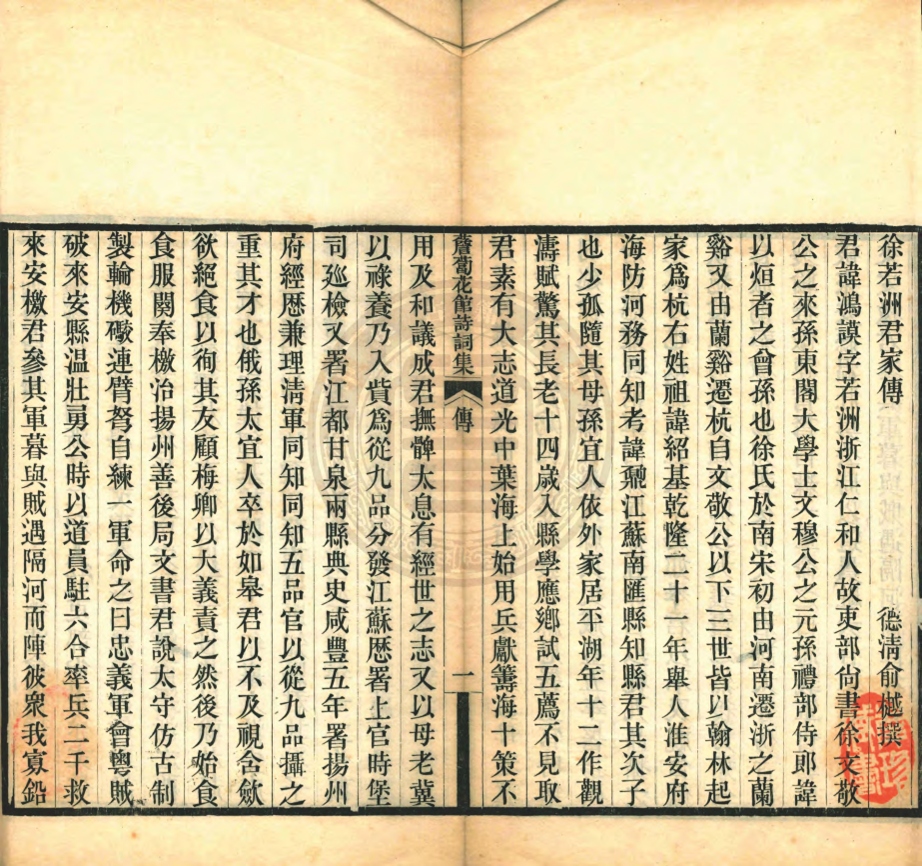 徐若洲君家傳
德淸俞樾撰
君諱鴻謨字若洲浙江仁和人故吏部尙書徐文敬
公之來孫東閣大學士文穆公之元孫禮部侍郎諱
以烜者之曾孫也徐氏於南宋初由河南遷浙之蘭
谿又由蘭谿遷杭自文敬公以下三世皆以翰林起
家爲杭右姓祖諱紹基乾隆二十一年舉人淮安府
海防河務同知考諱鼐江蘇南匯縣知縣君其次子
也少孤隨其母孫宜人依外家居平湖年十二作觀
濤賦驚其長老十四歲入縣學應鄉試五薦不見取
君素有大志道光中葉海上始用兵獻籌海十策不
薝蔔花館詩詞集
傳
一
用及和議成君撫髀太息有經世之志又以母老冀
以祿養乃入貲爲從九品分發江蘇歷署上官時堡
司巡檢又署江都甘泉兩縣典史咸豐五年署揚州
府經歷兼理淸軍同知同知五品官以從九品攝之
重其才也俄孫太宜人卒於如皋君以不及視含歛
欲絕食以徇其友顧梅卿以大義責之然後乃始食
食服闋奉檄治揚州善後局文書君說太守仿古制
製輪機礮連臂弩自練一軍命之曰忠義軍會粵賊
破來安縣溫壯勇公時以道員駐六合率兵二千救
來安檄君參其軍暮與賊遇隔河而陣彼衆我寡鉛